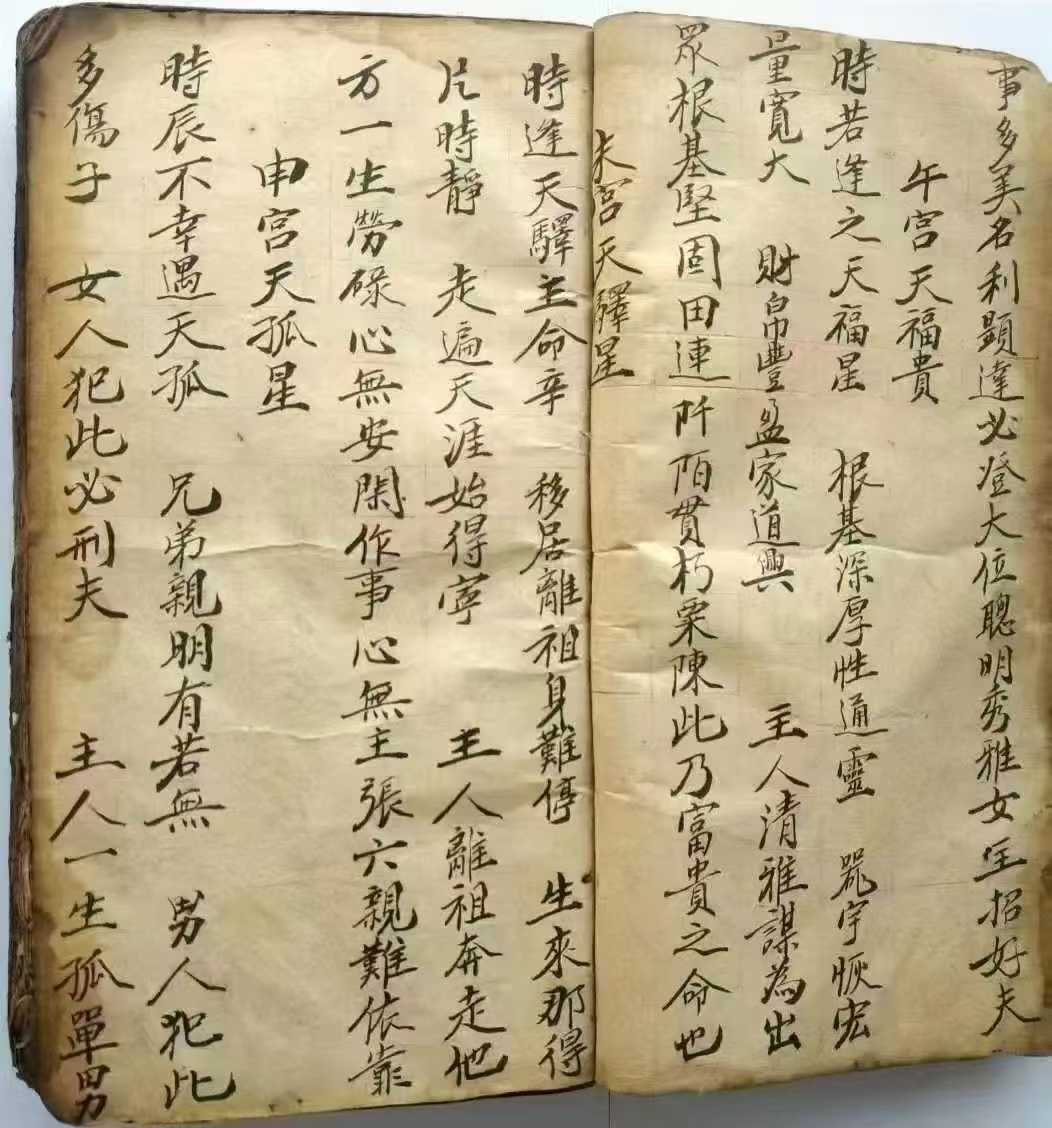 事多美名利顕達必登大位聰明秀雅女主招好夫
午宮天福貴
時若逢之天福星 根基深厚性通靈 器宇恢宏
量寬大 財帛豐盈家道興 主人清雅謀為出
眾根基堅固田連阡陌貫朽粟陳此乃富貴之命也
未宮天驛星
時逢天驛主命辛 移居離祖身難停 生來那得
片時靜 走遍天涯始得寧 主人離祖奔走他
方一生勞碌心無安閑作事心無主張六親難依靠
申宮天孤星
時辰不幸遇天孤 兄弟親明有若無 男人犯此
多傷子 女人犯此必刑夫 主人一生孤單男